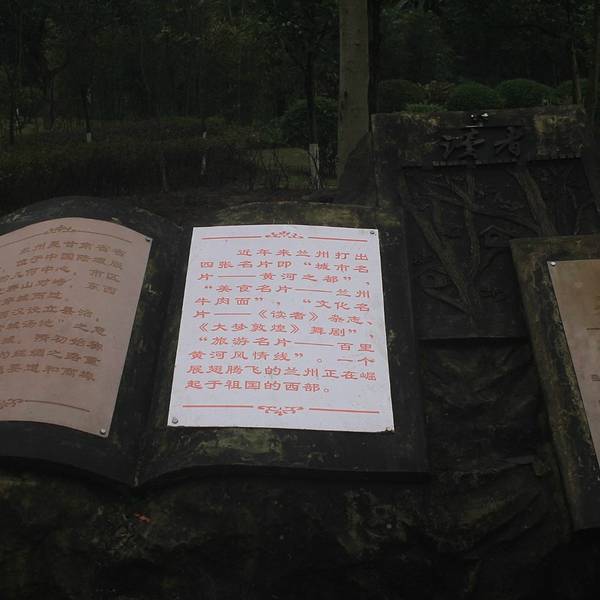 州是甘肃省省
位于中国陆域版
中心，市区
山对峙，东西
设立县治，
汤池”之意
丝绸之路重
要道和商埠
近年来兰州打出
四张名片即“城市名
片——黄河之都”，
“美食名片——兰州
牛肉面”，“文化名
片——《读者》杂志、
《大梦敦煌》舞剧”，
“旅游名片——百里
黄河风情线”。一个
展翅腾飞的兰州正在崛
起于祖国的西部。
读者